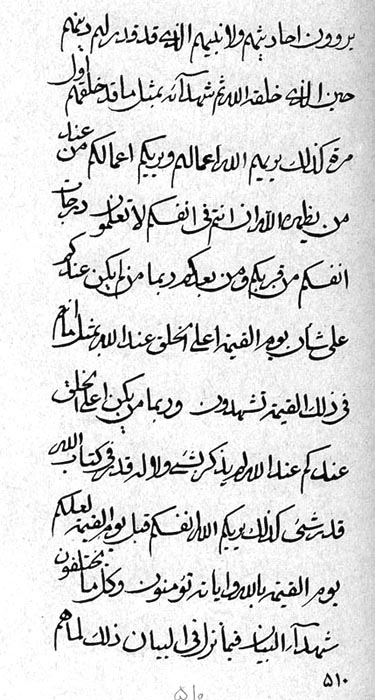 يروون احاديثهم ولا نبيهم الذي قد قدر لهم دينهم
حين الذي خلقه الله ثم شهدآئه بمثل ما قد خلقهم اول
مرة كذلك يريهم الله اعمالهم ويريكم اعمالكم من عند
من يظهره الله ان انتم في انفسكم لا تعلمون درجات
انفسكم من قربكم ومن بعدكم ربما من لم يكن عندكم
على شأن يوم القيمة اعلى الخلق عند الله بمثل ما انتم
في ذلك القيمة تشهدون وربما من يكن اعلى الخلق
عندكم عند الله لم يذكر بشئ ولا له قدر في كتاب الله
قدر شئ كذلك يريكم الله انفسكم قبل يوم القيمة لعلكم
يوم القيمة بالله واياته تؤمنون وكل ما يختلفون
شهدآء البيان فيما نزل في البيان ذلك لما هم
۵۱۰
۵۱۰